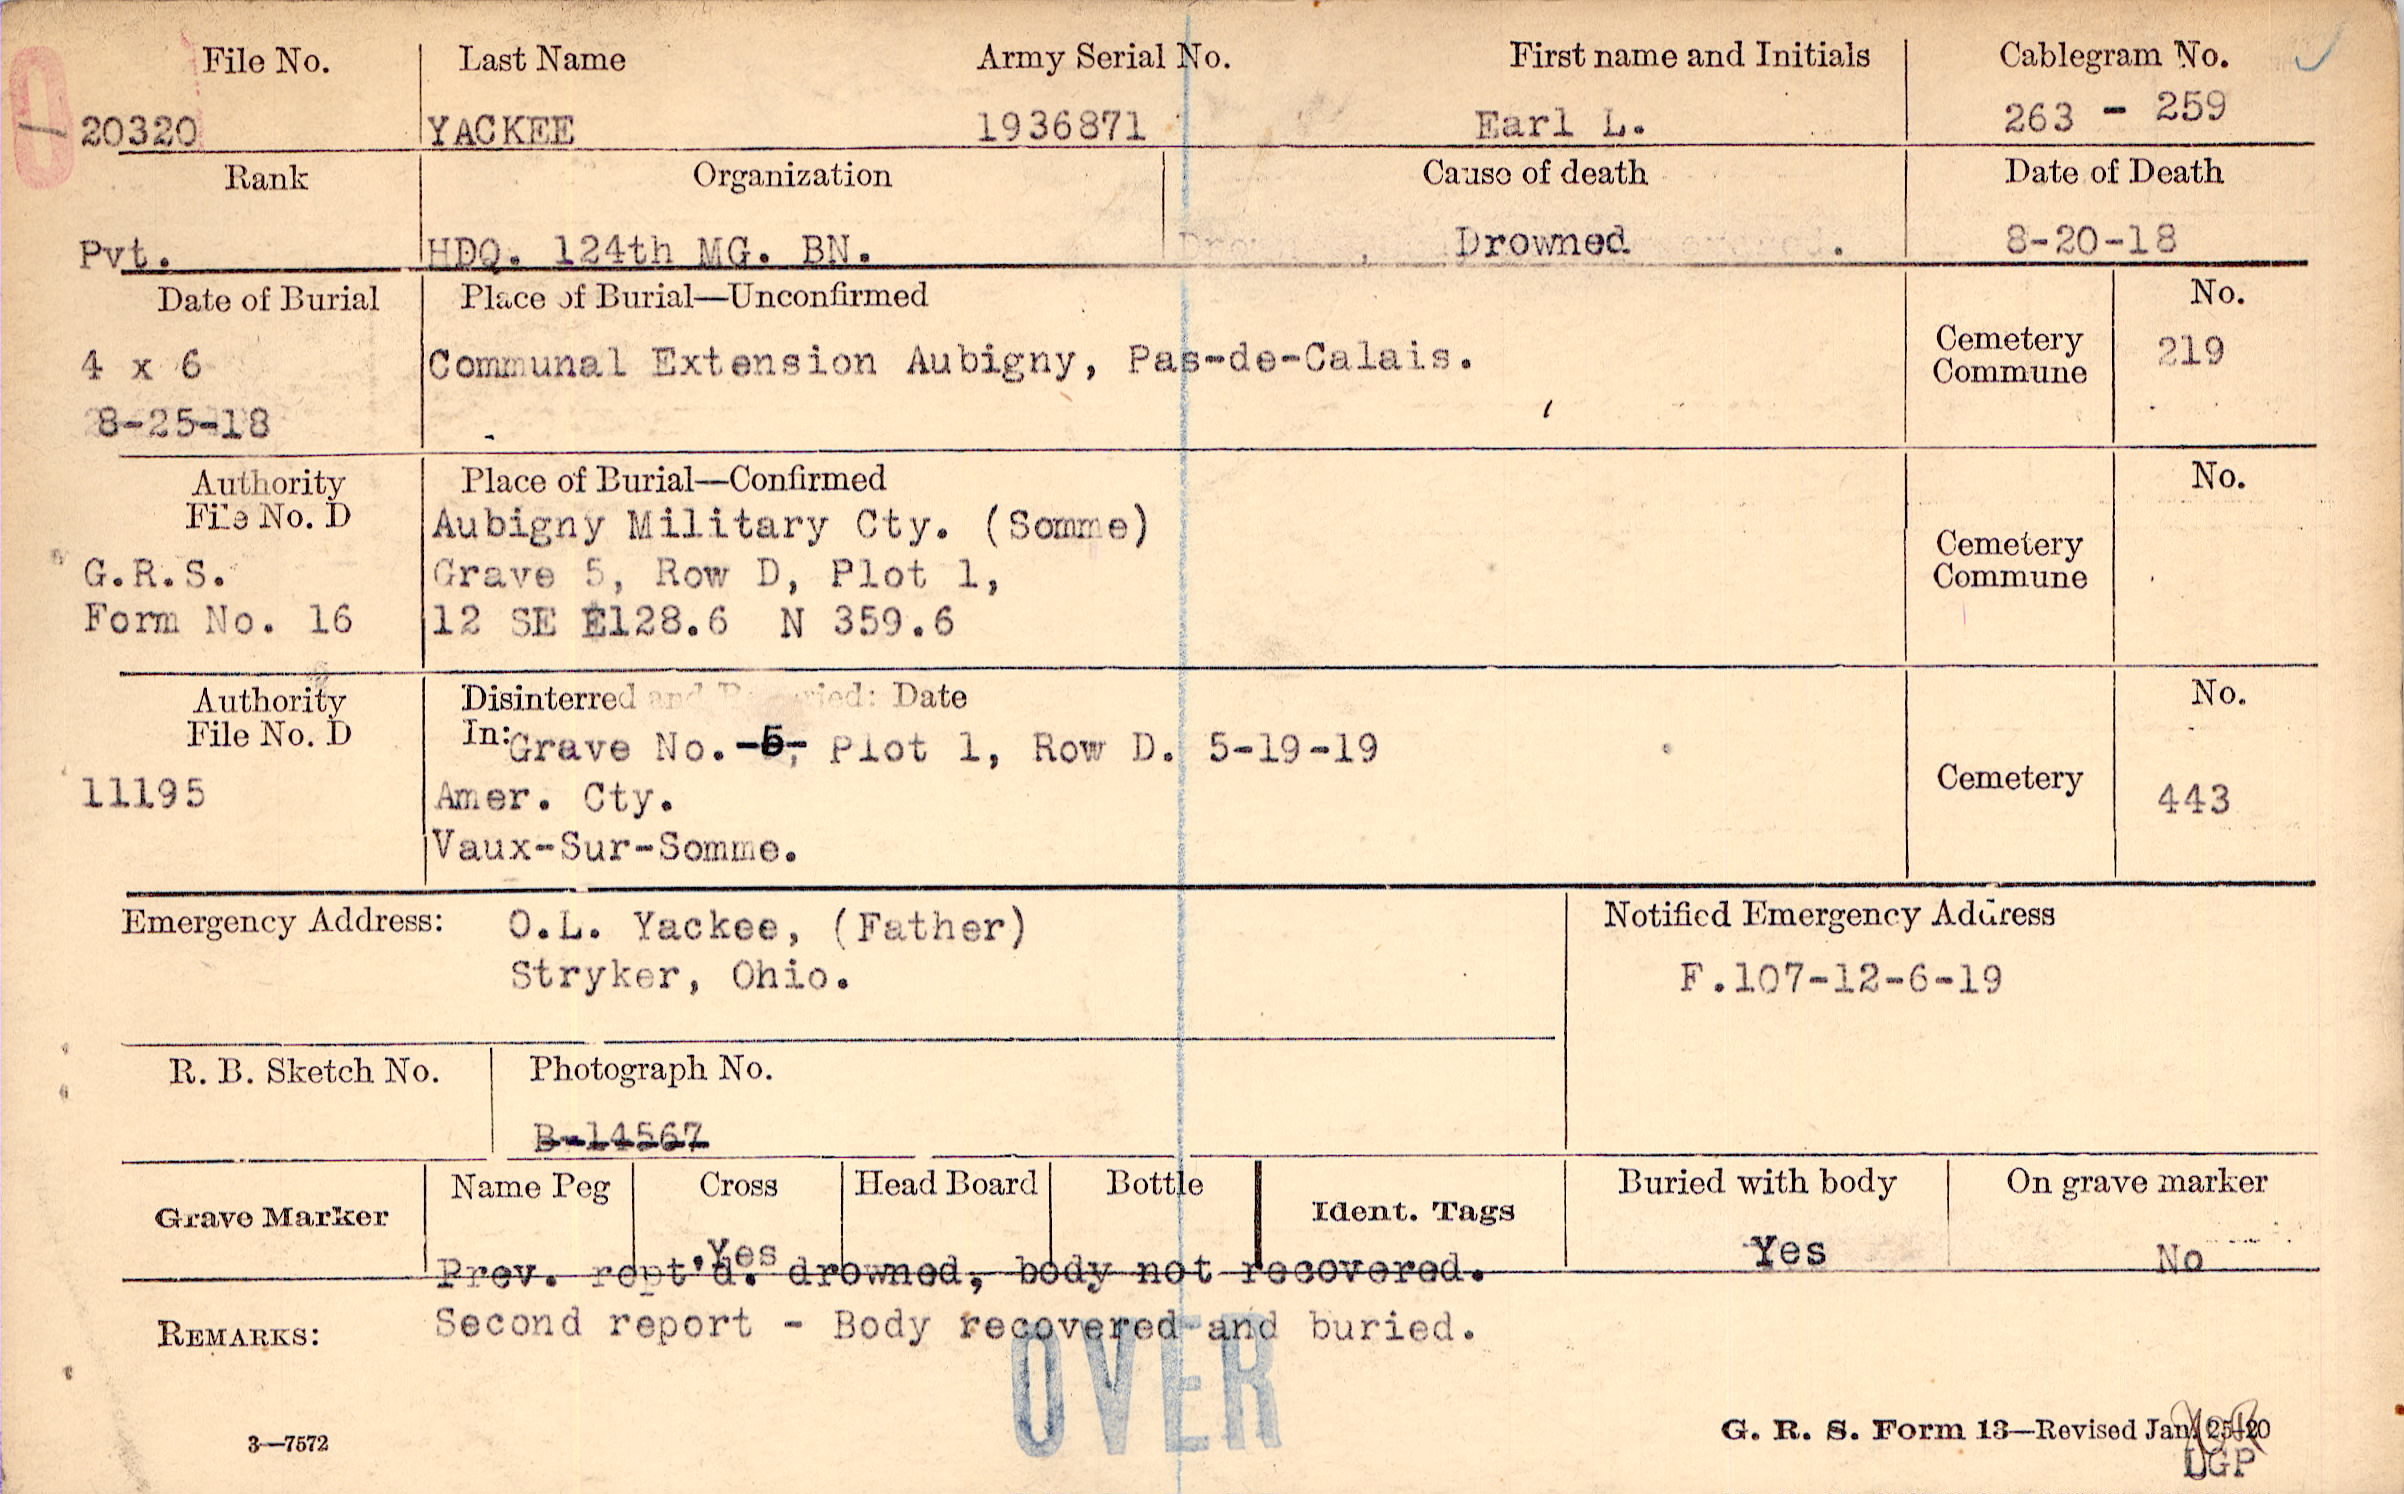 File No. Last Name Army Serial No. First name and Initials Cablegram No.
20320 YACKEE 1936871 Earl L. 263 - 259
Rank Organization Cause of death Date of Death
Pvt. HDQ. 124th MG. BN. Drowned. 8-20-18
Date of Burial Place of Burial—Unconfirmed No.
4 x 6 Communal Extension Aubigny, Pas-de-Calais. Cemetery Commune 219
8-25-18
Authority Place of Burial—Confirmed No.
File No. D Aubigny Military Cty. (Somme)
G.R.S. Grave 5, Row D, Plot 1, Cemetery Commune
Form No. 16 12 SE E128.6 N 359.6
Authority Disinterred and Reburied: Date No.
File No. D In: Grave No. 5, Plot 1, Row D. 5-19-19
11195 Amer. Cty. Cemetery 443
Vaux-Sur-Somme.
Emergency Address: O.L. Yackee, (Father) Notified Emergency Address
Stryker, Ohio. F.107-12-6-19
R. B. Sketch No. Photograph No.
B-14567
Grave Marker Name Peg Cross Head Board Bottle Ident. Tags Buried with body On grave marker
Yes Yes No
Prev. rept'd. drowned, body not recovered.
REMARKS: Second report - Body recovered and buried.
OVER
3—7572 G. R. S. Form 13—Revised Jan. 25-20
LGP